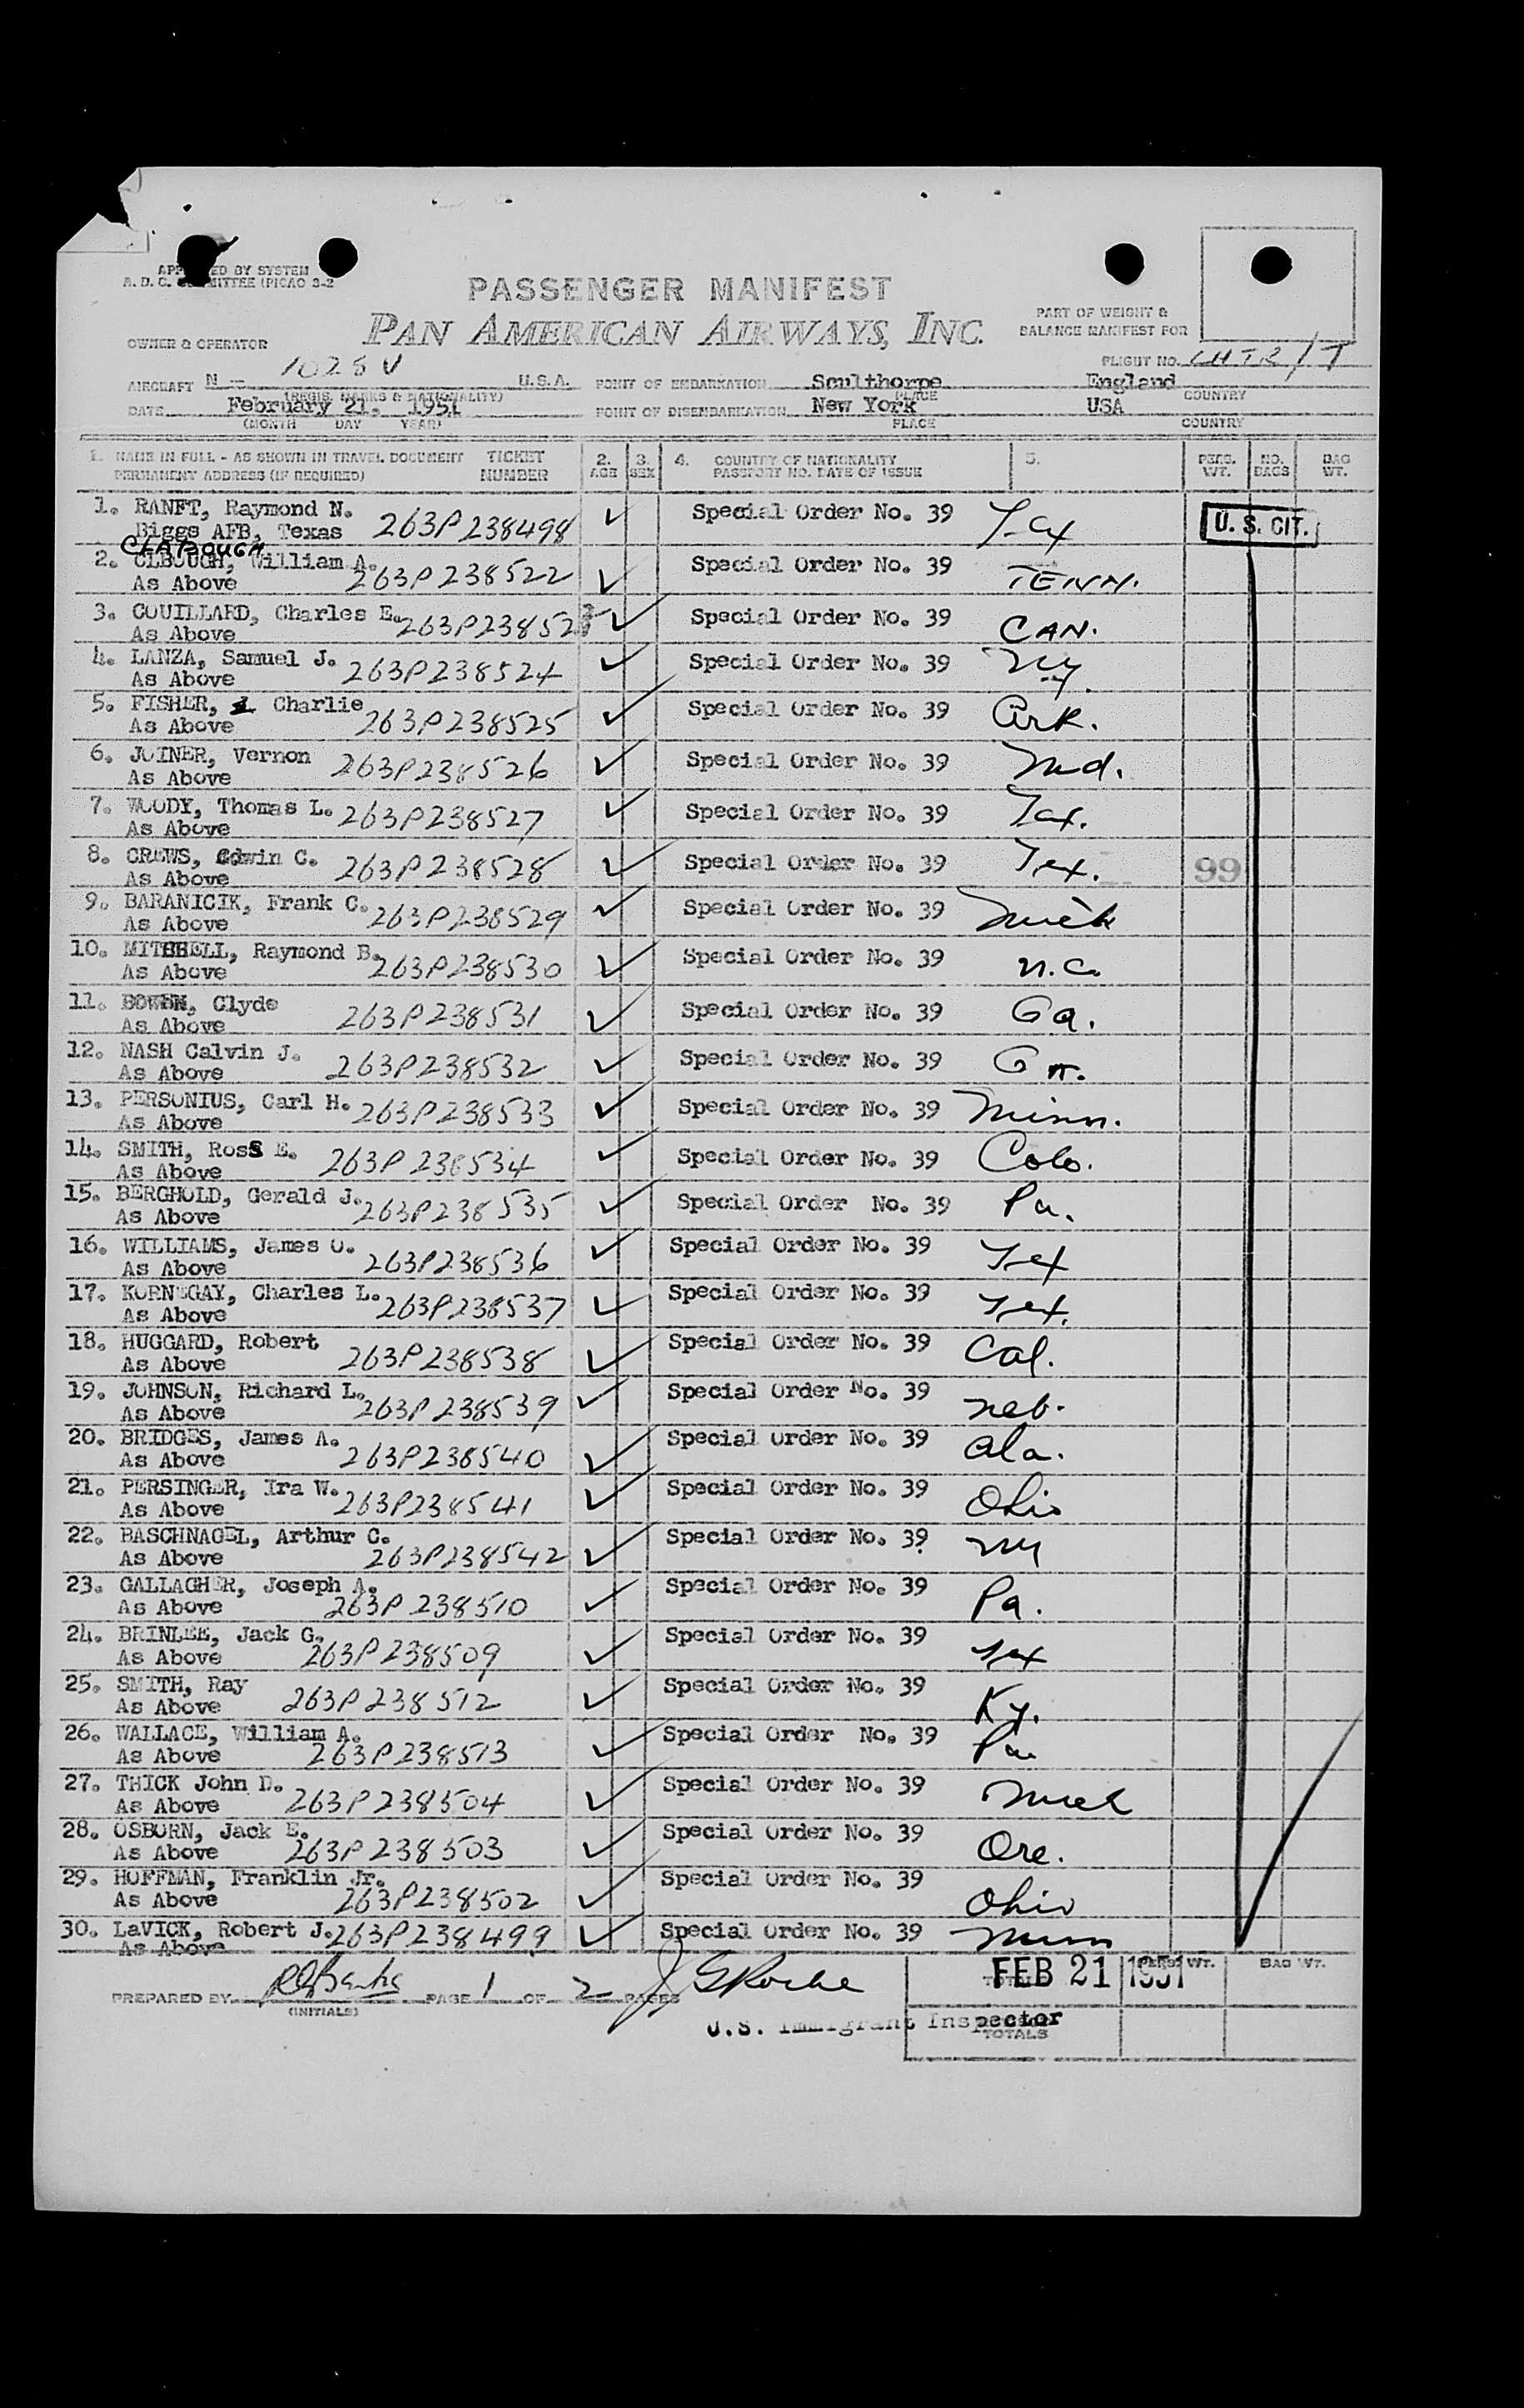 APPROVED BY SYSTEM
A. D. C. COMMITTEE (PICAO 3-2
PASSENGER MANIFEST
PAN AMERICAN AIRWAYS, INC.
PART OF WEIGHT &
BALANCE MANIFEST FOR
OWNER & OPERATOR
FLIGHT NO. CHTR/T
AIRCRAFT N - 1028 V U.S.A. POINT OF EMBARKATION Sculthorpe England
(REGIS. MARKS & NATIONALITY) PLACE COUNTRY
DATE February 21, 1951 POINT OF DISEMBARKATION New York USA
(MONTH DAY YEAR) PLACE COUNTRY
1. NAME IN FULL - AS SHOWN IN TRAVEL DOCUMENT TICKET 2. 3. 4. COUNTRY OF NATIONALITY 5. PERS. NO. BAG
PERMANENT ADDRESS (IF REQUIRED) NUMBER AGE SEX PASSPORT NO. DATE OF ISSUE WT. BAGS WT.
1. RANFT, Raymond N. Special Order No. 39 Tex U. S. CIT.
Biggs AFB, Texas 263P238498
CLABOUGH
2. CLBOUGH, William A. Special Order No. 39 TENN.
As Above 263P238522
3. COUILLARD, Charles E. 263P238523 Special Order No. 39 CAN.
As Above
4. LANZA, Samuel J. 263P238524 Special Order No. 39 NY.
As Above
5. FISHER, Charlie Special Order No. 39 Ark.
As Above 263P238525
6. JOINER, Vernon 263P238526 Special Order No. 39 Md.
As Above
7. WOODY, Thomas L. 263P238527 Special Order No. 39 Tex.
As Above
8. CREWS, Edwin C. 263P238528 Special Order No. 39 Tex. 99
As Above
9. BARANICIK, Frank C. 263P238529 Special Order No. 39 Mich
As Above
10. MITCHELL, Raymond B. 263P238530 Special Order No. 39 N.C.
As Above
11. BOWEN, Clyde 263P238531 Special Order No. 39 Ga.
As Above
12. NASH Calvin J. 263P238532 Special Order No. 39
As Above
13. PERSONIUS, Carl H. 263P238533 Special Order No. 39 Minn.
As Above
14. SMITH, Ross E. 263P238534 Special Order No. 39 Colo.
As Above
15. BERGHOLD, Gerald J. 263P238535 Special Order No. 39 Pa.
As Above
16. WILLIAMS, James O. 263P238536 Special Order No. 39 Tex
As Above
17. KORNEGAY, Charles L. 263P238537 Special Order No. 39 Tex.
As Above
18. HUGGARD, Robert 263P238538 Special Order No. 39 Cal.
As Above
19. JOHNSON, Richard L. 263P238539 Special Order No. 39 Neb.
As Above
20. BRIDGES, James A. 263P238540 Special Order No. 39 Ala.
As Above
21. PERSINGER, Ira W. 263P238541 Special Order No. 39 Ohio
As Above
22. BASCHNAGEL, Arthur C. Special Order No. 39 NY
As Above 263P238542
23. GALLAGHER, Joseph A. Special Order No. 39 Pa.
As Above 263P238510
24. BRINLEE, Jack G. Special Order No. 39 Tex
As Above 263P238509
25. SMITH, Ray 263P238512 Special Order No. 39 Ky.
As Above
26. WALLACE, William A. Special Order No. 39 Pa.
As Above 263P238513
27. THICK John D. Special Order No. 39 Mich
As Above 263P238504
28. OSBORN, Jack E. Special Order No. 39 Ore.
As Above 263P238503
29. HOFFMAN, Franklin Jr. Special Order No. 39 Ohio
As Above 263P238502
30. LaVICK, Robert J. 263P238499 Special Order No. 39 Minn
As Above
PREPARED BY PAGE 1 OF 2 PAGES J G Roche FEB 21 1951 PERS. WT. BAG WT.
(INITIALS)
U.S. Immigrant Inspector
TOTALS